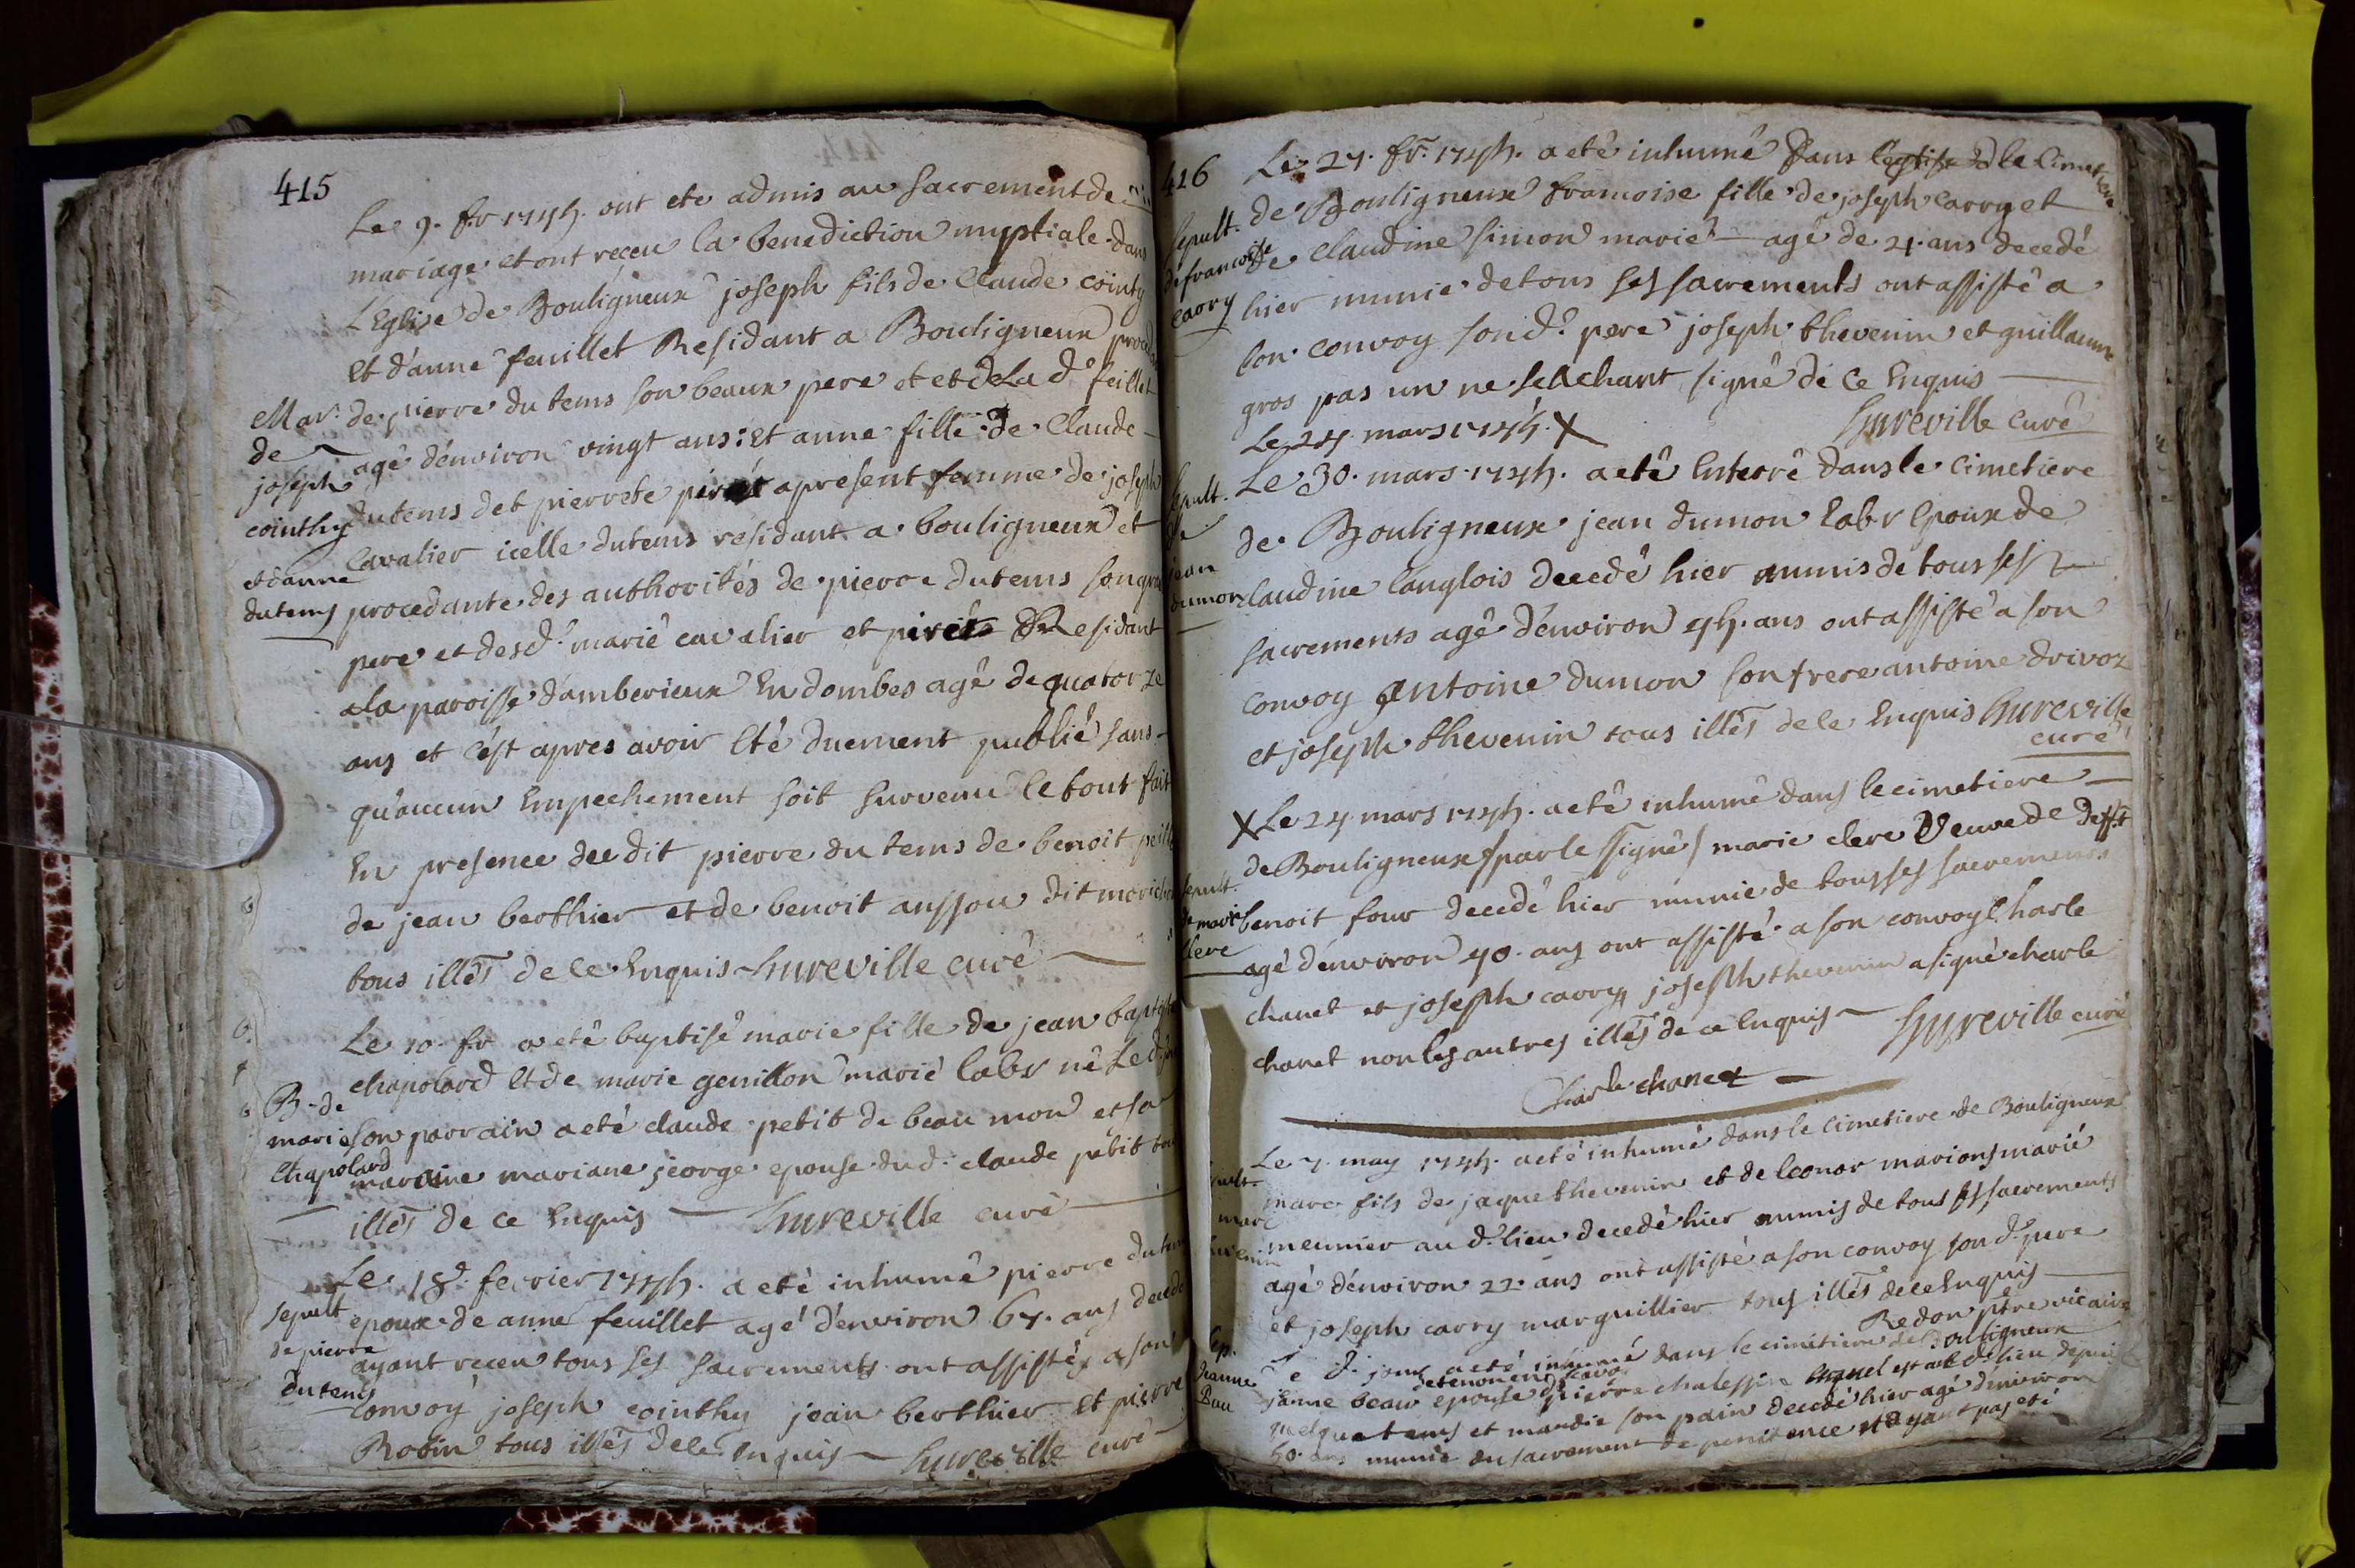 415
Le 9. fr 1745. ont ete admis au sacrement de
mariage et ont receu la benediction nuptiale dans
L'Eglise de Bouligneux joseph fils de Claude cointy
Et d'anne feuillet Residant a Bouligneux
Mar. de joseph cointhy et d'anne dutems
de pierre du tems son beaux pere et et de La d.e feillet
agé d'environ vingt ans: Et anne fille de Claude
dutems det pierrete apresent femme de joseph
Cavalier icelle dutems residant a bouligneux et
procedante des authorités de pierre dutems son
pere et desd. marié cavalier et Residant
a la paroisse d'amberieux En dombes agé de quatorze
ans et c'est apres avoir Eté duement publié sans
qu'aucun Empechement soit survenu le tout fait
En presence du dit pierre du tems de benoit
de jean berthier et de benoit aussou dit
tous illés de ce Enquis Hureville curé
Le 10. fr a eté baptisé marie fille de jean baptiste
B. de marie Chapolard
chapolard Et de marie genillon marié labr né Le
son parrain a eté claude petit de beau mon et sa
maraine mariane jeorge epouse dud. claude petit
illés de ce Enquis Hureville curé
Le 18e. fevrier 1745. a eté inhumé pierre dutems
sepult de pierre dutems
epoux de anne feuillet agé d'environ 67. ans decedé
ayant receu tous ses sacrements ont assistés a son
convoy joseph cointhy jean berthier et pierre
Robin tous illés de ce Enquis Hureville curé
416
Le 27. fr. 1745. a eté inhumé Dans l'eglise d le Cimetiere
sepult. de francoise caory
de Bouligneux francoise fille de joseph carry et
de Claudine simon marié agé de 21. ans decedé
hier munie de tous ses sacrements ont assisté a
son convoy sond.t pere joseph thevenin et guillaume
gros pas un ne sachant signé de ce Enquis
Hureville Curé
Le 24 mars 1745. X
Le 30. mars 1745. a eté Enterré dans le cimetiere
sepult. de jean dumon
de Bouligneux jean dumon labr Epoux de
claudine langlois decedé hier munis de tous ses
sacrements agé d'environ 45. ans ont assisté a son
convoy antoine dumon son frere antoine drivoz
et joseph thevenin tous illés de ce Enquis Hureville
curé
X Le 24 mars 1745. a eté inhumé dans le cimetiere
de Bouligneux /par le ssigné/ marie clere Veuve de deff.t
sepult. de marie clere
benoit four decedé hier munie de tous ses sacrements
agé d'environ 40. ans ont assisté a son convoy Charle
chanet et joseph carry joseph thevenin a signé charle
chanet non les autres illés de ce Enquis Hureville curé
Charle chanet
Le 7. may 1745. a eté inhumé dans le cimetiere de Bouligneux
marc fils de jaque thevenin et de leonor marions marié
meunier au d. lieu decedé hier munis de tous ses sacrements
agé d'environ 22. ans ont assisté a son convoy son d. pere
et joseph carry marguillier tous illés de ce Enquis
Redon ptre vicaire
Sep. Jeanne Bau
Le d. jour a eté inhumé dans le cimetiere de Bouligneux
janne beau epouse de pierre lequel est au d. lieu depuis
quelque tems et mandie son pain decedé hier agé d'environ
50. ans munie du sacrement de penitence n'ayant pas eté